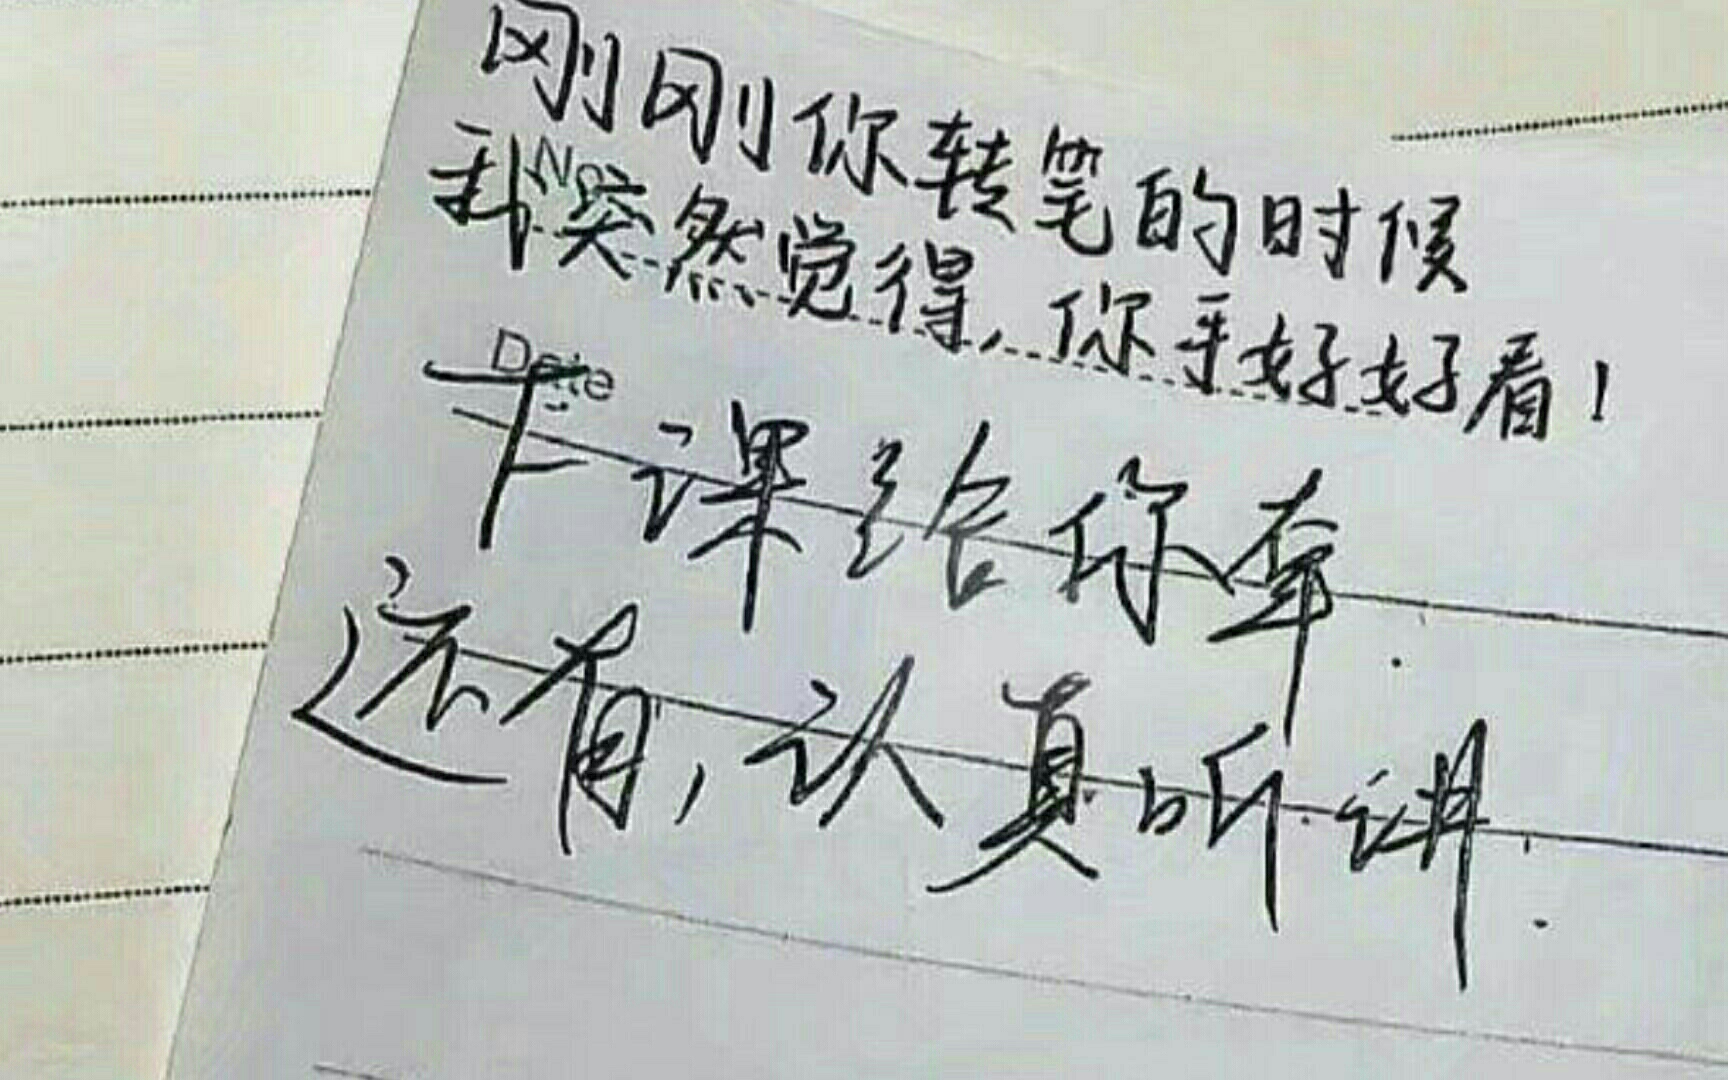 刚刚你转笔的时候
No
我突然觉得,你手好好看!
Date
下课给你牵.
还有,认真听讲.